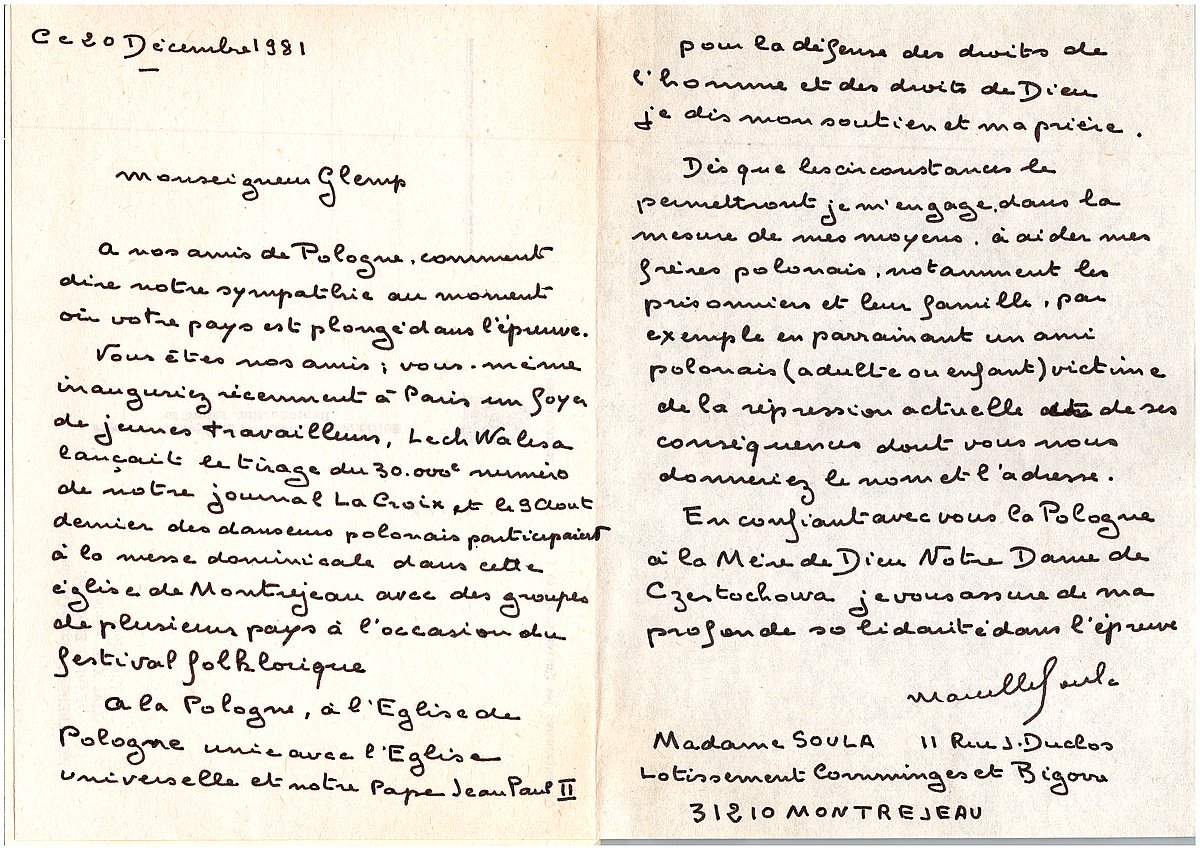 Ce 20 Décembre 1981
Monseigneur Glemp
A nos amis de Pologne, comment
dire notre sympathie au moment
où votre pays est plongé dans l'épreuve.
Vous êtes nos amis ; vous-même
inauguriez récemment à Paris un foyer
de jeunes travailleurs, Lech Walesa
lançait le tirage du 30.000e numéro
de notre journal La Croix, et le 9 Aout
dernier des danseurs polonais participaient
à la messe dominicale dans cette
église de Montrejeau avec des groupes
de plusieurs pays à l'occasion du
festival folklorique
A la Pologne, à l'Eglise de
Pologne unie avec l'Eglise
universelle et notre Pape Jean Paul II
pour la défense des droits de
l'homme et des droits de Dieu
je dis mon soutien et ma prière.
Dès que les circonstances le
permettront je m'engage, dans la
mesure de mes moyens, à aider mes
frères polonais, notamment les
prisonniers et leur famille, par
exemple en parrainant un ami
polonais (adulte ou enfant) victime
de la répression actuelle de ses
conséquences dont vous nous
donneriez le nom et l'adresse.
En confiant avec vous la Pologne
à la Mère de Dieu Notre Dame de
Czestochowa je vous assure de ma
profonde solidarité dans l'épreuve
Marcelle Soula
Madame SOULA 11 Rue J. Duclos
Lotissement Comminges et Bigorre
31210 MONTREJEAU